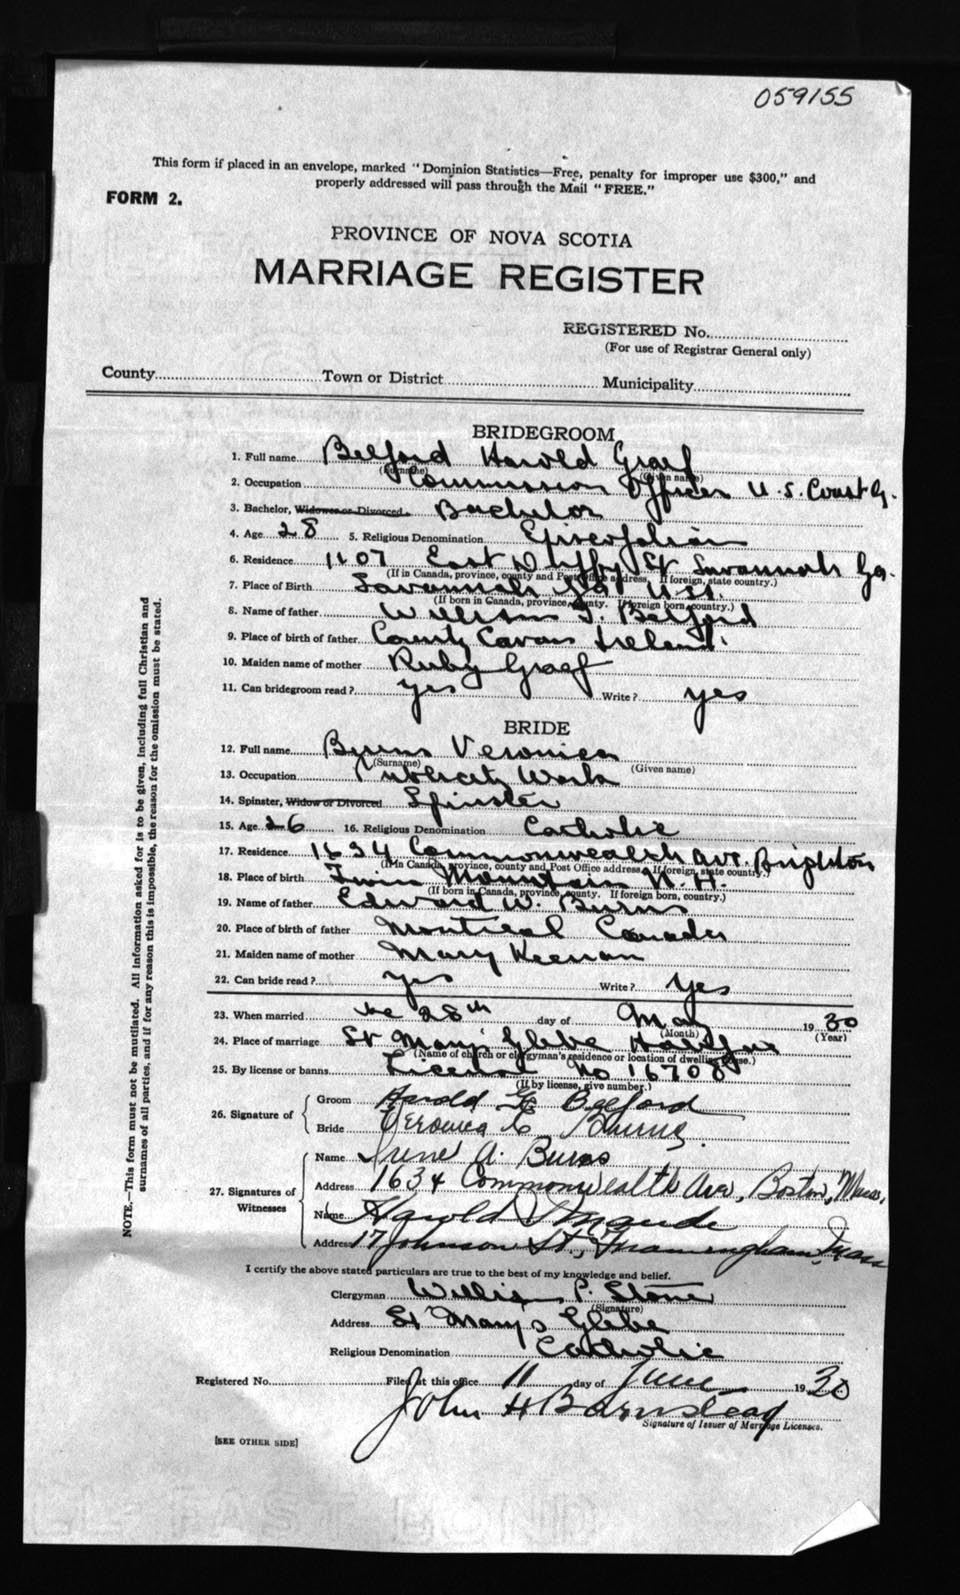 059155
This form if placed in an envelope, marked "Dominion Statistics—Free, penalty for improper use $300," and
properly addressed will pass through the Mail "FREE."
FORM 2.
PROVINCE OF NOVA SCOTIA
MARRIAGE REGISTER
REGISTERED No.
(For use of Registrar General only)
County Town or District Municipality
BRIDEGROOM
1. Full name Belford Harold Graef
(Surname) (Given name)
2. Occupation Commission Officer U.S. Coast G.
3. Bachelor, Widower or Divorced Bachelor
4. Age 28 5. Religious Denomination Episcopalian
6. Residence 1107 East Duffy St Savannah Ga.
(If in Canada, province, county and Post Office address. If foreign, state country.)
7. Place of Birth Savannah Ga. USA.
(If born in Canada, province, county. If foreign born, country.)
8. Name of father William T. Belford
9. Place of birth of father County Cavan Ireland.
10. Maiden name of mother Ruby Graef
11. Can bridegroom read? yes Write? yes
BRIDE
12. Full name Burns Veronica
(Surname) (Given name)
13. Occupation Publicity Work
14. Spinster, Widow or Divorced Spinster
15. Age 26 16. Religious Denomination Catholic
17. Residence 1634 Commonwealth Ave. Brighton
(If in Canada, province, county and Post Office address. If foreign, state country.)
18. Place of birth Twin Mountain N.H.
(If born in Canada, province, county. If foreign born, country.)
19. Name of father Edward W. Burns
20. Place of birth of father Montreal Canada
21. Maiden name of mother Mary Keenan
22. Can bride read? yes Write? yes
23. When married the 28th day of May 1930
(Month) (Year)
24. Place of marriage St Marys Glebe Halifax
(Name of church or clergyman's residence or location of dwelling house.)
25. By license or banns License No 16708
(If by license, give number.)
26. Signature of
Groom Harold G. Belford
Bride Veronica C. Burns.
27. Signatures of Witnesses
Name Irene A. Burns
Address 1634 Commonwealth Ave, Boston, Mass.
Name Harold Maude
Address 17 Johnson St., Framingham, Mass
I certify the above stated particulars are true to the best of my knowledge and belief.
Clergyman William P. Stone
(Signature)
Address St Marys Glebe
Religious Denomination Catholic
Registered No. Filed at this office 11 day of June 1930
John H Barnstead
Signature of Issuer of Marriage Licenses.
[SEE OTHER SIDE]
NOTE.—This form must not be mutilated. All information asked for is to be given, including full Christian and
surnames of all parties, and if for any reason this is impossible, the reason for the omission must be stated.